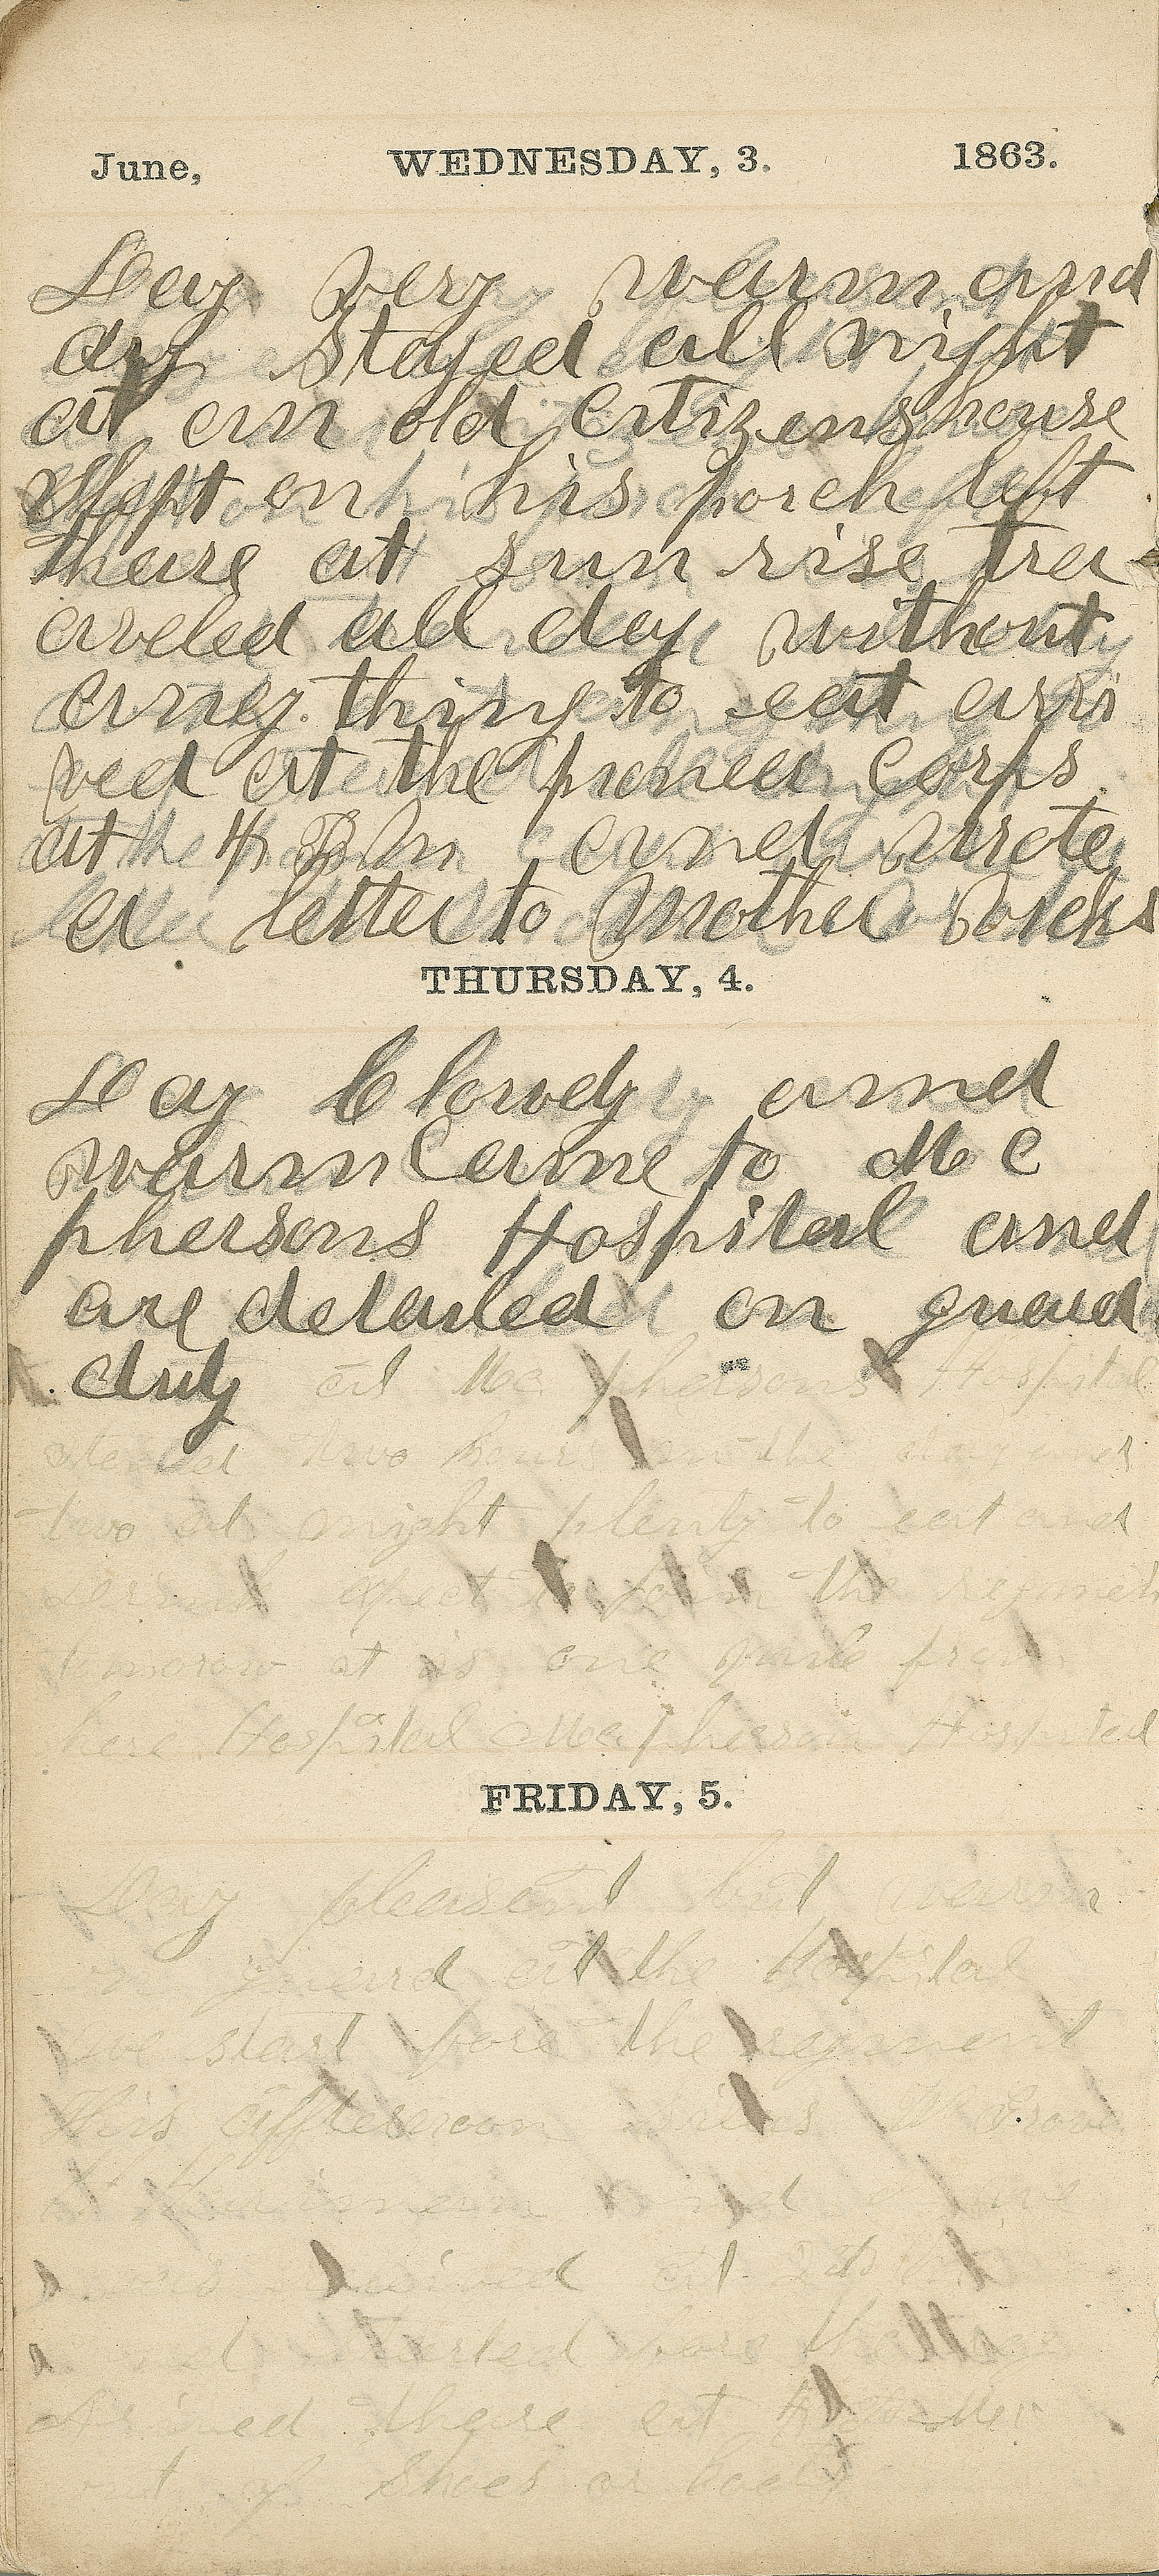 June, WEDNESDAY, 3. 1863.
Day very warm and
dry Stayed all night
at an old Citizens house
Slept on his porch left
there at sun rise tra
aveled all day without
aney thing to eat arri
ved at the pioneer Corps
at 4 P M and wrote
a letter to Mother
THURSDAY, 4.
Day Clowdy and
warm Came to Mc
phersons Hospital and
are detailed on guard
duty at Mc phersons Hospital
two hours in the day and
two at night plenty to eat and
expect to join the regment
tomorow it is one mile from
here Hospital Mcpherson Hospital
FRIDAY, 5.
Day pleasent but warm
on guard at the Hospital
we start fore the regment
this affternoon
and
arived at
started fore the
Arived there at
out of Shoes or